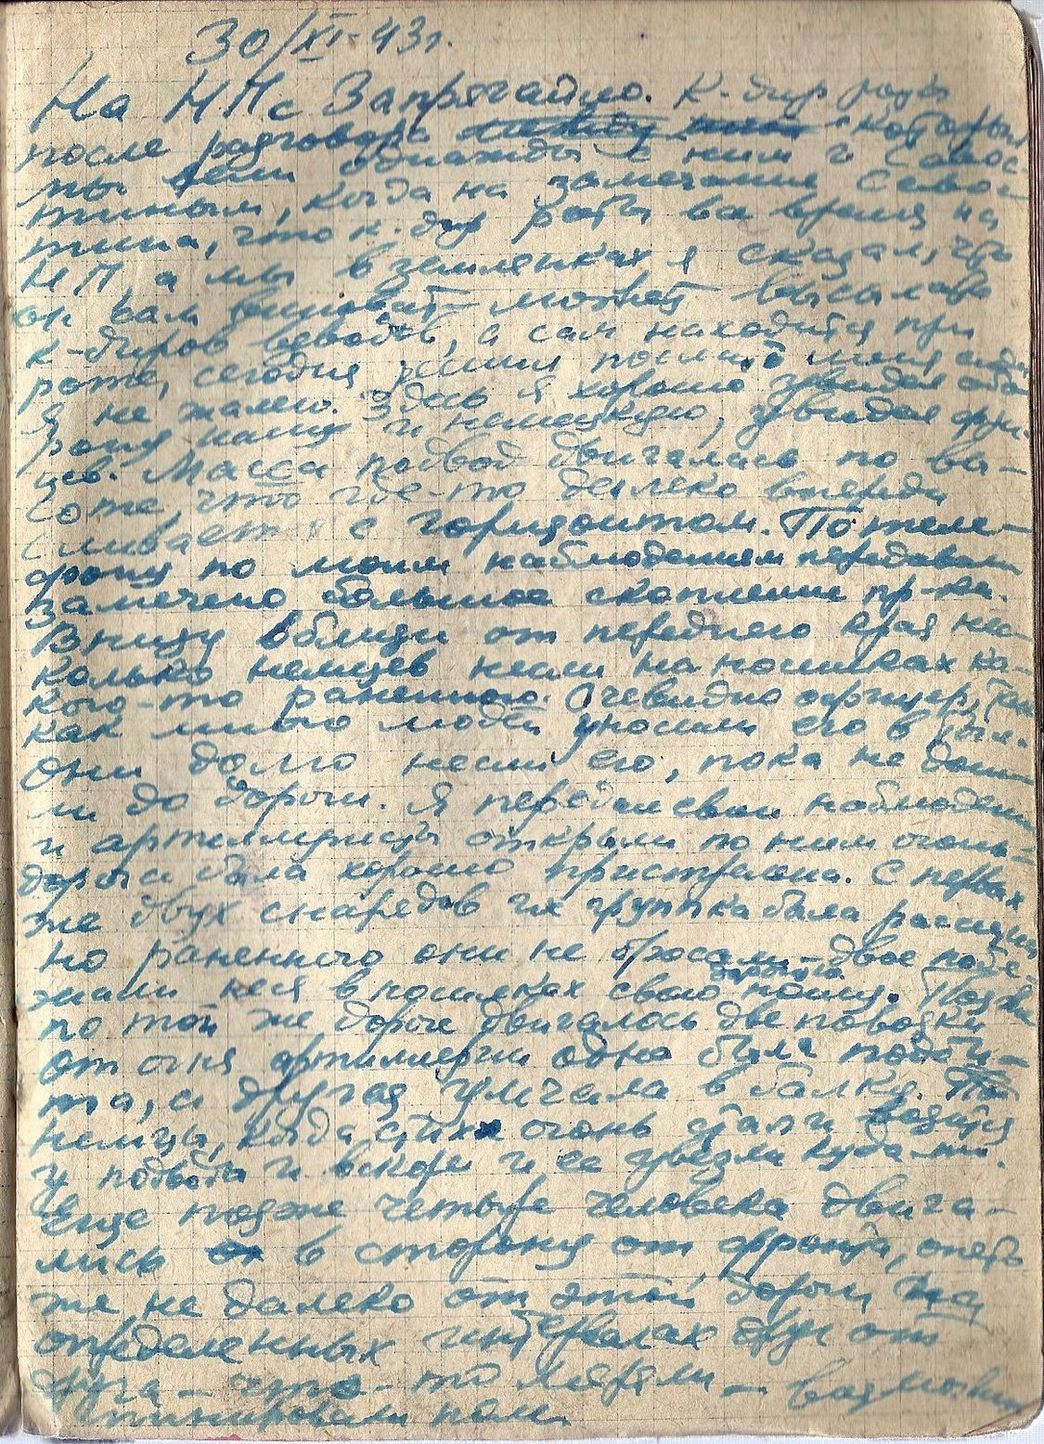 30/XI-43г.
На НП с Запрягайло. К-дир роты
после разговора который
мы вели однажды с ним и Савос-
тиным, когда на замечание Савос-
тина, что к-дир роты все время на
НП, а мы в землянках я сказал, что
он сам виноват – может высылать
к-диров взводов, а сам находиться при
роте, сегодня решил послать меня сюда
Я не жалею. Здесь я хорошо увидел обо-
рону нашу и немецкую, увидел фри-
цев. Масса подвод двигалась по вы-
соте, что где-то далеко впереди
сливается с горизонтом. По теле-
фону по моим наблюдениям передавали
замечено большое скопление пр-ка.
Внизу вблизи от переднего края нес-
колько немцев несли на носилках ка-
кого-то раненного. Очевидно офицер, так
как много людей уносили его в тыл.
Они долго несли его, пока не дош-
ли до дороги. Я передал свои наблюдения
и артиллеристы открыли по ним огонь –
дорога была хорошо пристреляна. С первых
же двух снарядов их группка была рассеяна
но раненного они не бросали – двое побе-
жали неся в носилках свою дорогую ношу. Позже
по той же дороге двигалось две повозки
от огня артиллерии одна была подби-
та, а другая умчала в балку.
немцы, когда стих огонь стали возиться
у подводы и вскоре и ее увезли куда-то.
Еще позже четыре человека двига-
лись в сторону от фронта, опять
же не далеко от этой дороги на
определенных интервалах друг от
друга – что-то меряли – возможно
минировали поле